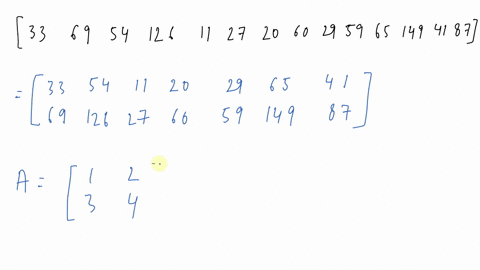 [33 69 54 126 11 27 20 60 29 59 65 149 41 87]
= [33 54 11 20 29 65 41
69 126 27 60 59 149 87]
A = [1 2
3 4